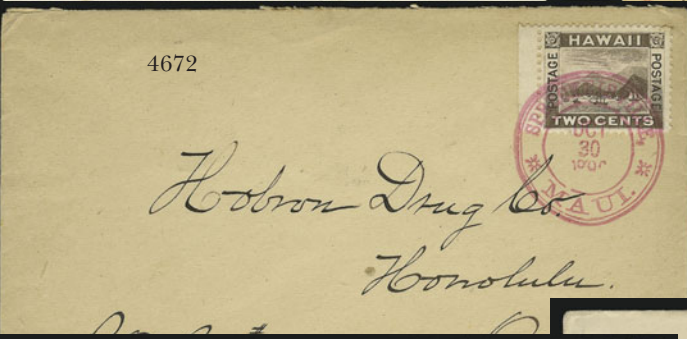 4672
HAWAII
POSTAGE
POSTAGE
TWO CENTS
OCT
30
MAUI.
Hobron Drug Co.
Honolulu.